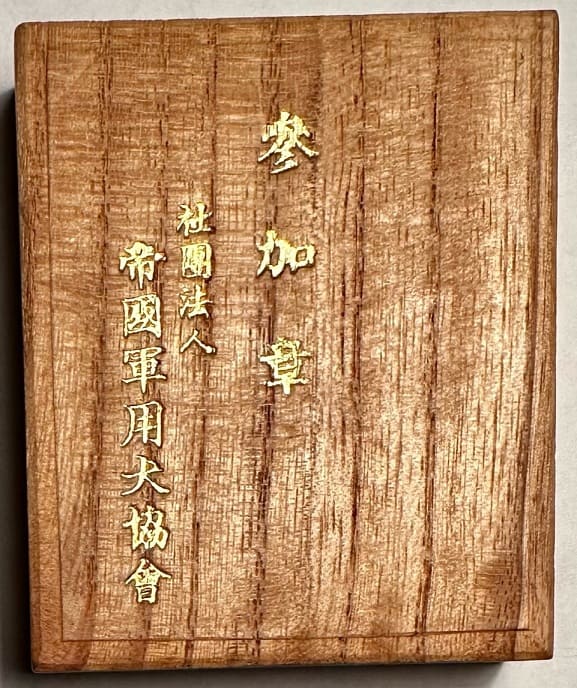 參加章
社團法人
帝國軍用犬協會